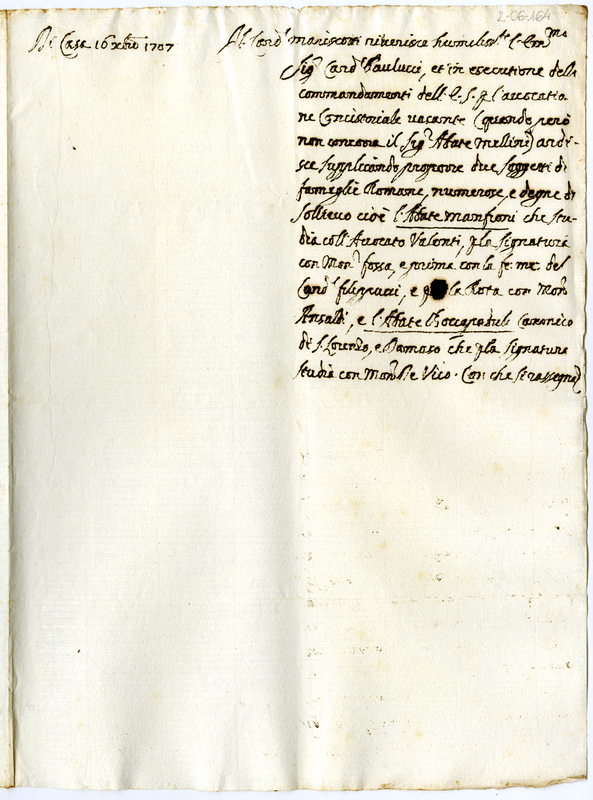 2-06-164
Di Casa 16 xbre 1707
Il Card.l Mariscotti riverisce humilm.te l'Em.mo
Sig.r Card.l Paulucci, et in esecutione delli
commandamenti dell'E. S. p l'avocatio-
ne Concistoriale vacante (quando però
non concorra il Sig.r Abate Mellini) ardi-
sce supplicando proporre due soggetti di
fameglie Romane, numerose, e degne di
sollievo cioè l'Abate Manfroni che stu-
dia coll'Avocato Valenti, p la signatura
con Mon.r fossa, e prima con la fe: me: del
Card.l filippucci, e p la Rota con Mon.r
Ansaldi, e l'Abate Roccapaduli Canonico
di S. Lorenzo, e Damaso che p la signatura
studia con Mon.r De Vico. Con che si rassegna